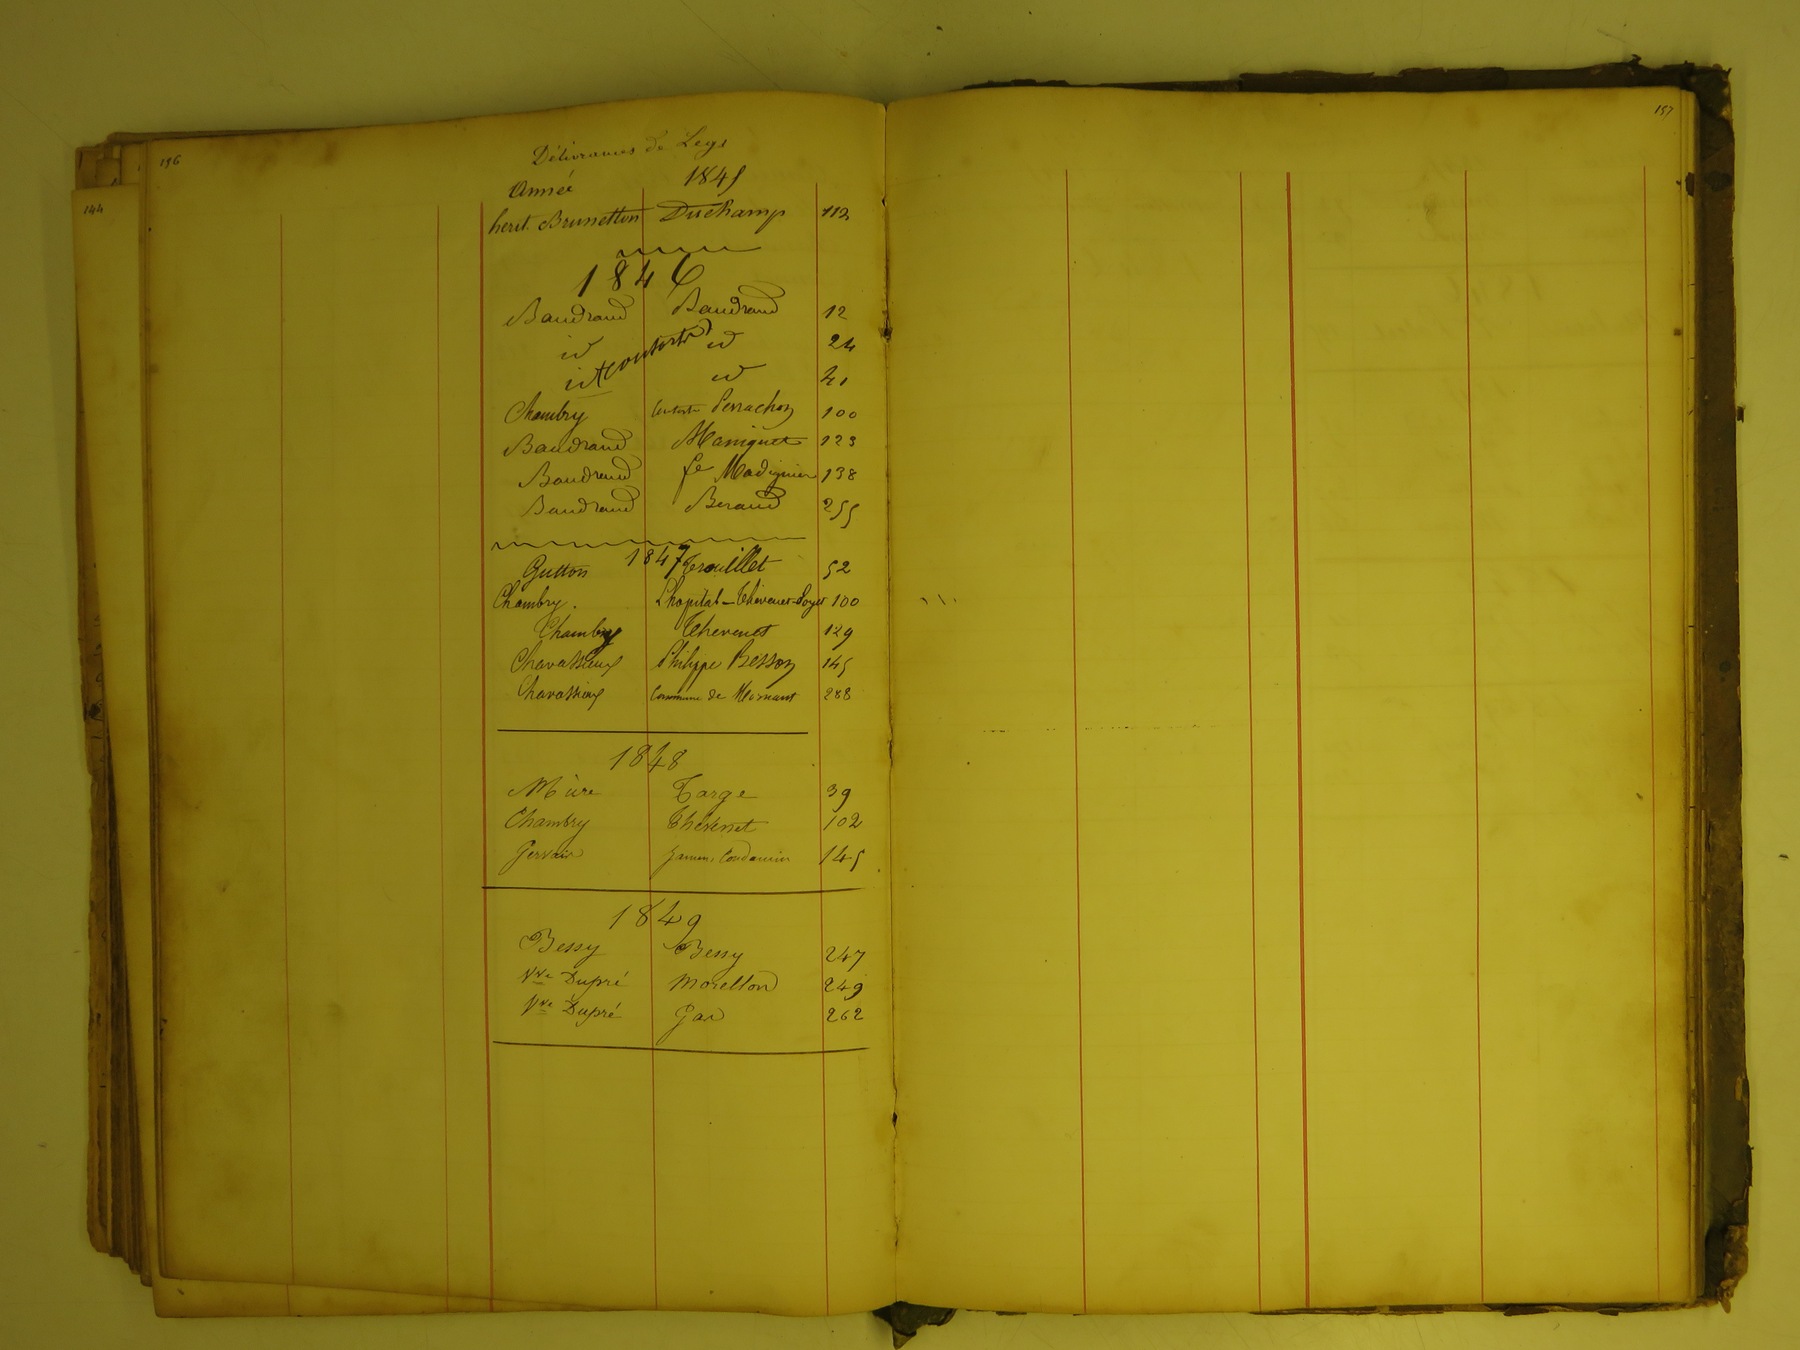 196
157
144
Délivrances de Legs
Année 1845
herit. Brunetton Duchamp 112
1846
Baudrand Baudrand 12
id id 24
id id 41
Chambry Perrachon 100
Baudrand Maniquet 123
Baudrand fe Madignier 138
Baudrand Beraud 255
1847
Gutton Trouillet 52
Chambry. L'hopital - Thevenet-Poyet 100
Chambry Thevenet 129
Chavassieux Philippe Besson 145
Chavassieux Commune de Mornant 288
1848
Mure Targe 39
Chambry Thevenet 102
Gervais Condamin 145
1849
Bessy Bessy 247
Vve Dupré Morellon 249
Vve Dupré Gas 262